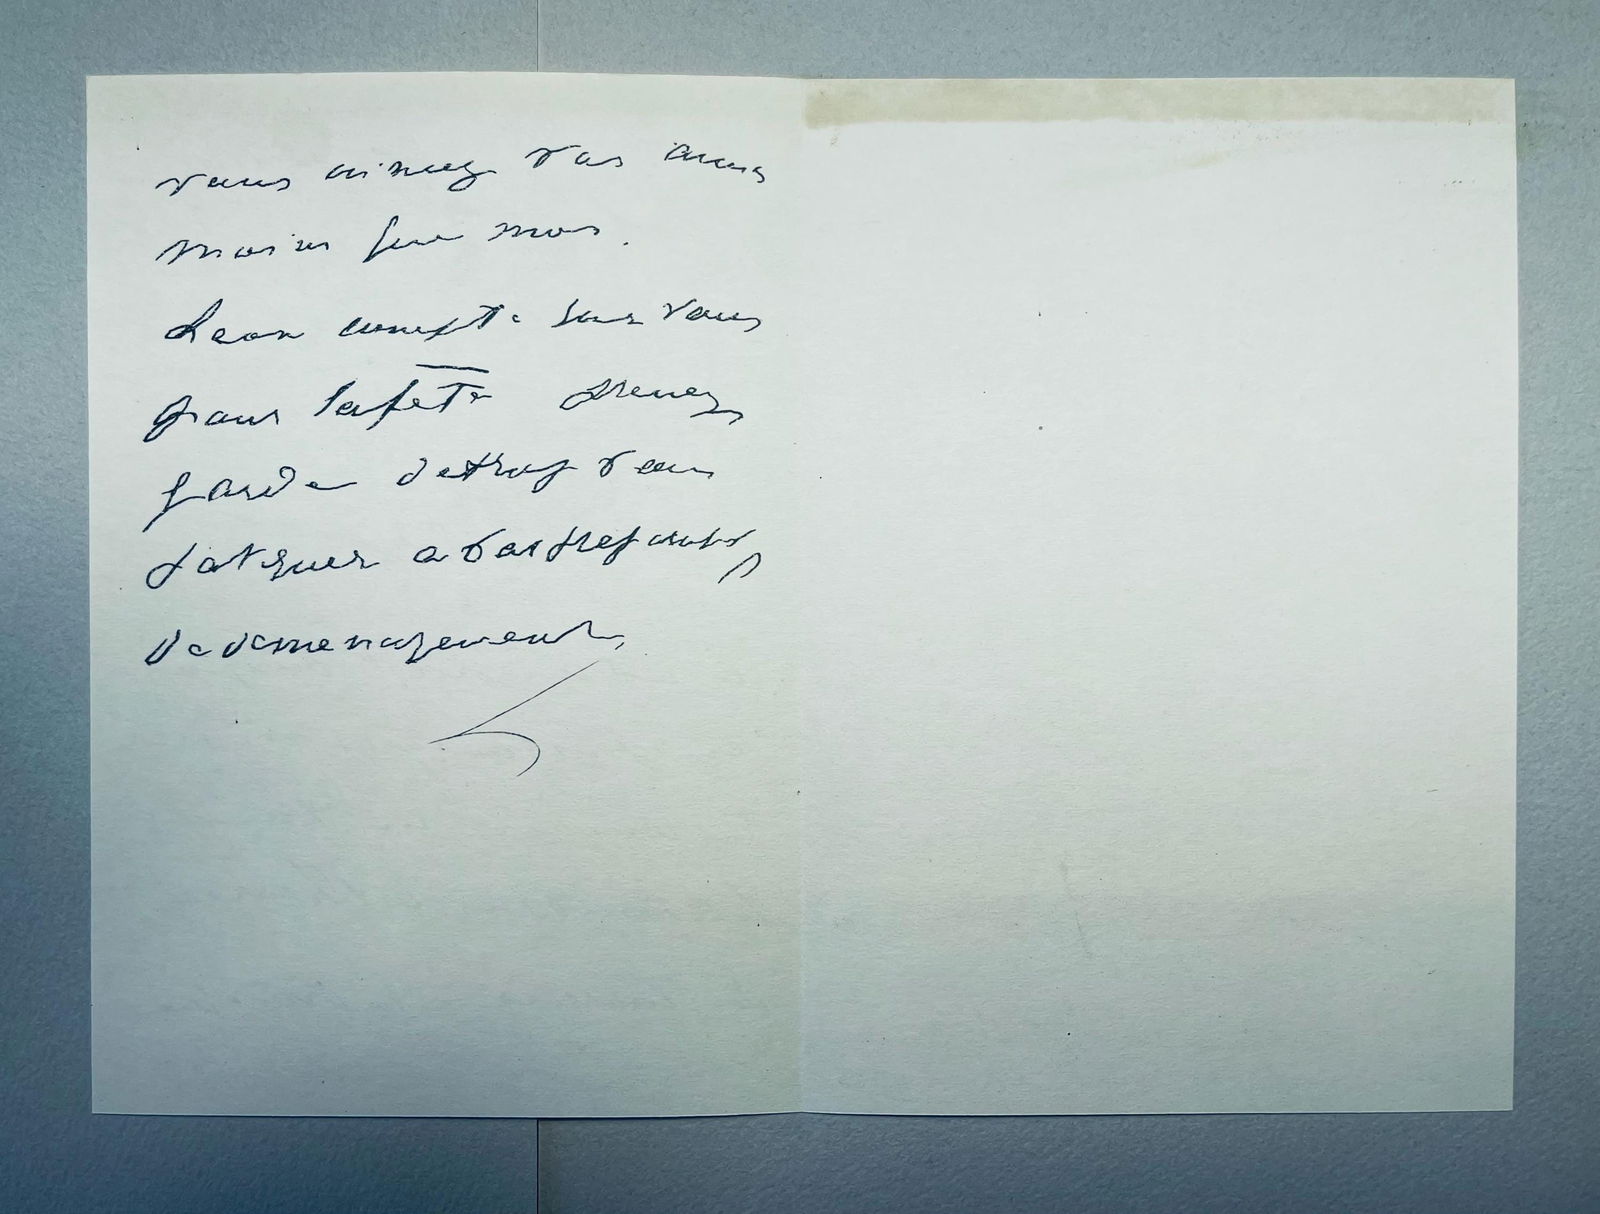 vous aimez vos amis
moins que moi.
Léon compte sur vous
pour la fête prenez
garde de trop vous
fatiguer à vos préparatifs
de déménagement,